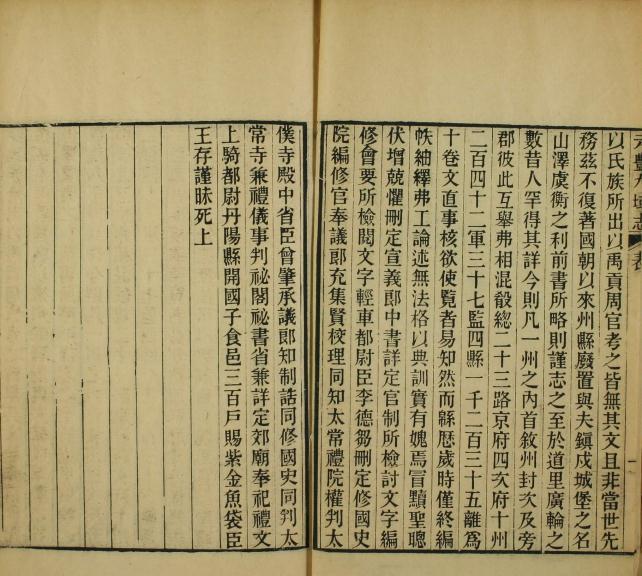 以氏族所出以禹貢周官考之皆無其文且非當世先
務茲不復著國朝以來州縣廢置與夫鎭戍城堡之名
山澤虞衡之利前書所略則謹志之至於道里廣輪之
數昔人罕得其詳今則凡一州之內首敘州封次及旁
郡彼此互舉弗相混殽總二十三路京府四次府十州
二百四十二軍三十七監四縣一千二百三十五離爲
十卷文直事核欲使覧者易知然而緜歴歲時僅終編
帙紬繹弗工論述無法格以典訓實有媿焉冒黷聖聰
伏增兢懼刪定宣義郎中書詳定官制所檢討文字編
修會要所檢閱文字輕車都尉臣李德芻刪定修國史
院編修官奉議郎充集賢校理同知太常禮院權判太
僕寺殿中省臣曾肇承議郎知制誥同修國史同判太
常寺兼禮儀事判祕閣祕書省兼詳定郊廟奉祀禮文
上騎都尉丹陽縣開國子食邑三百戸賜紫金魚袋臣
王存謹昧死上